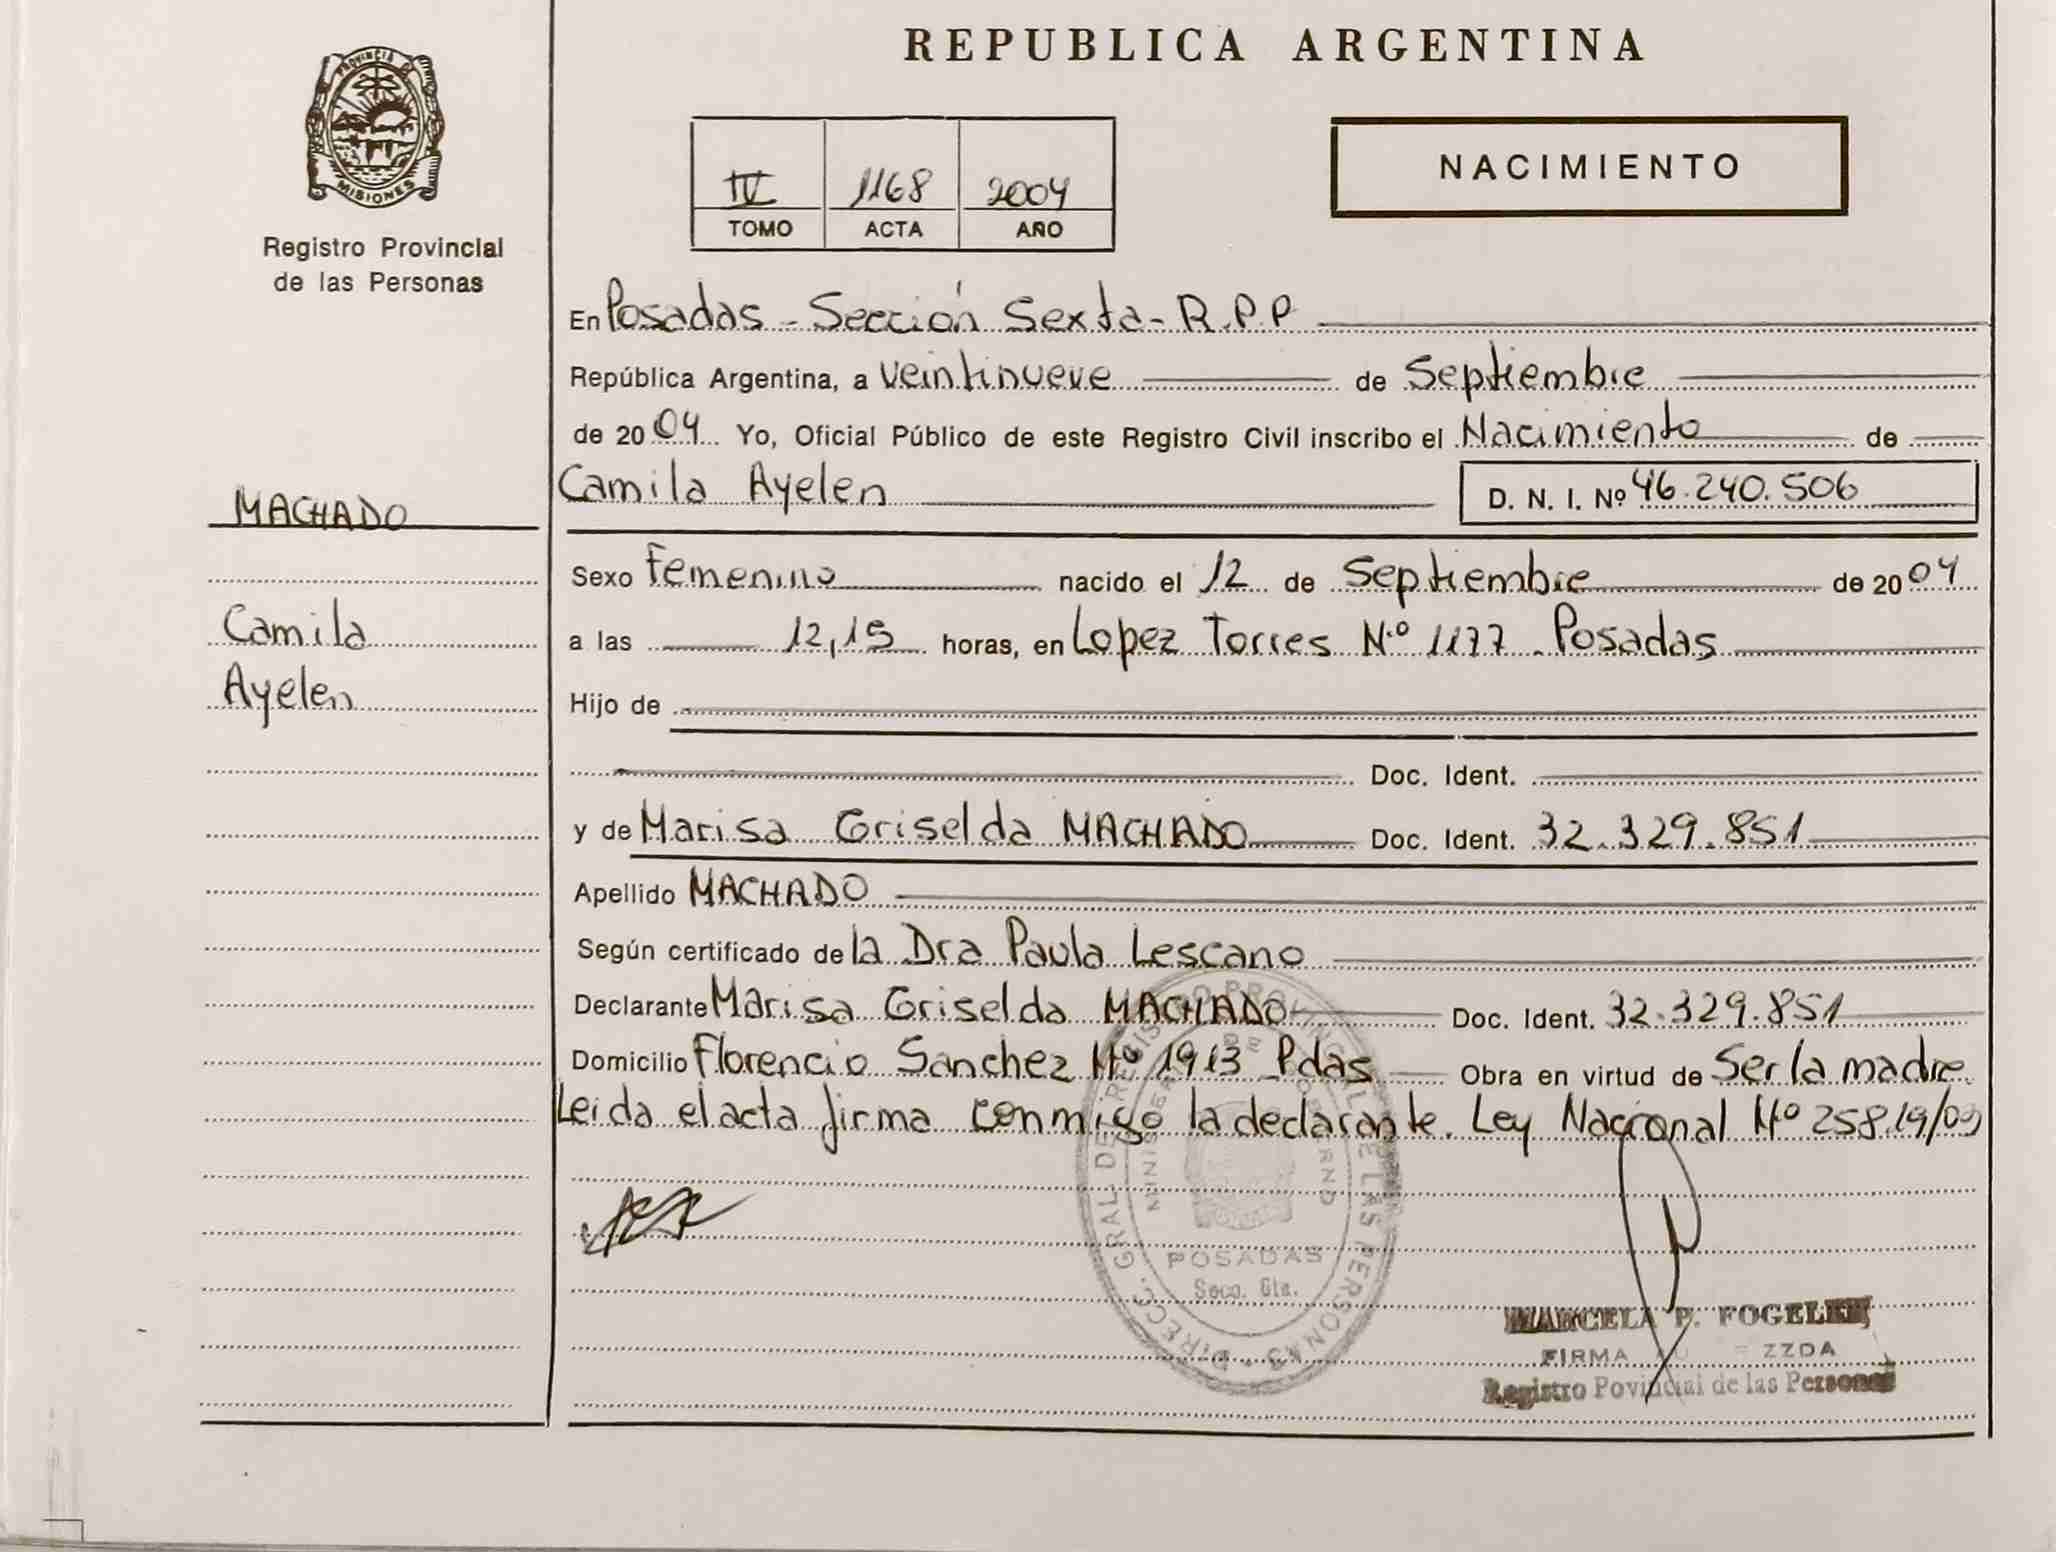 REPUBLICA ARGENTINA
PROVINCIA DE
MISIONES
Registro Provincial
de las Personas
IV 1168 2004
TOMO ACTA AÑO
NACIMIENTO
En Posadas - Sección Sexta - R.P.P
República Argentina, a veintinueve de Septiembre
de 2004 Yo, Oficial Público de este Registro Civil inscribo el Nacimiento de
Camila Ayelen D. N. I. Nº 46.240.506
MACHADO
Camila
Ayelen
Sexo Femenino nacido el 12 de Septiembre de 2004
a las 12,15 horas, en Lopez Torres N.º 1177 - Posadas
Hijo de
Doc. Ident.
y de Marisa Griselda MACHADO Doc. Ident. 32.329.851
Apellido MACHADO
Según certificado de la Dra Paula Lescano
Declarante Marisa Griselda MACHADO Doc. Ident. 32.329.851
Domicilio Florencio Sanchez Nº 1913 Pdas Obra en virtud de Ser la madre
Leida el acta firma conmigo la declarante. Ley Nacional Nº 25819/03
DIRECC. GRAL DEL REGISTRO PROVINCIAL DE LAS PERSONAS
MINISTERIO DE GOBIERNO
POSADAS
Secc. 6ta.
MARCELA P.
FIRMA
Registro Povincial de las Personas